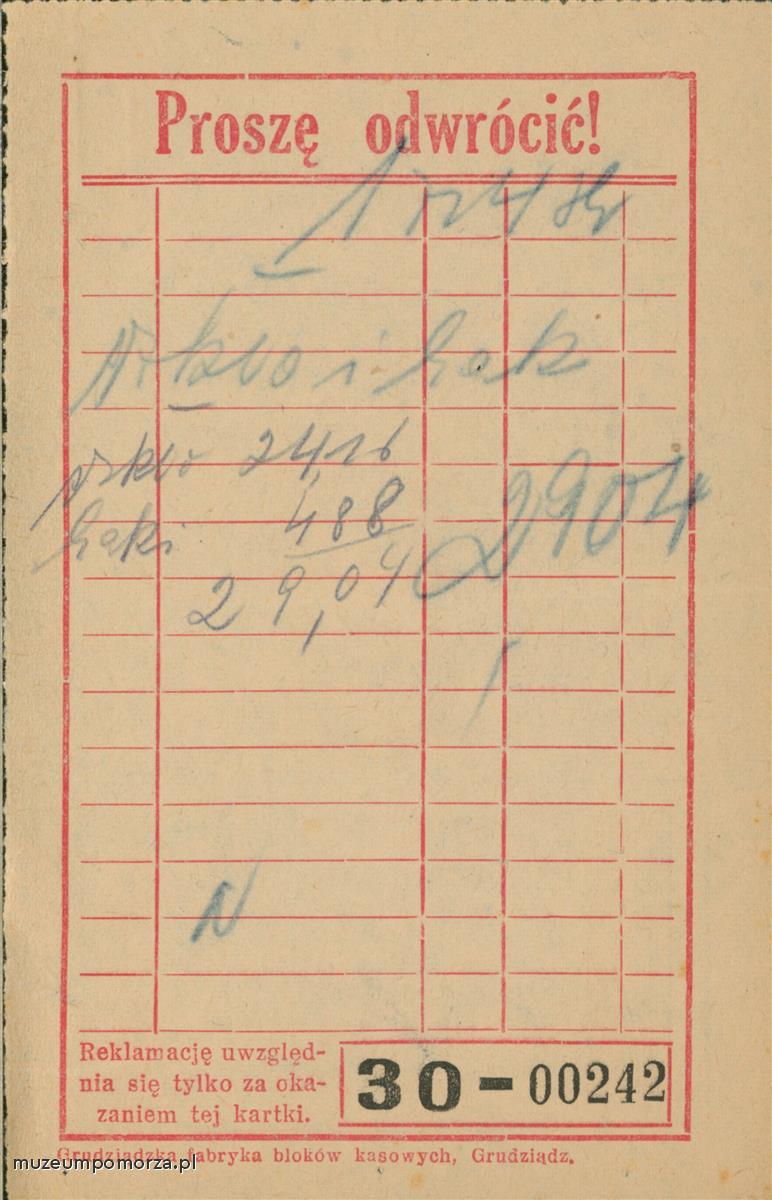 Proszę odwrócić!
24,16
488
29,04
2904
N
Reklamację uwzględ-
nia się tylko za oka-
zaniem tej kartki.
30-00242
Grudziądzka fabryka bloków kasowych, Grudziądz.
muzeumpomorza.pl